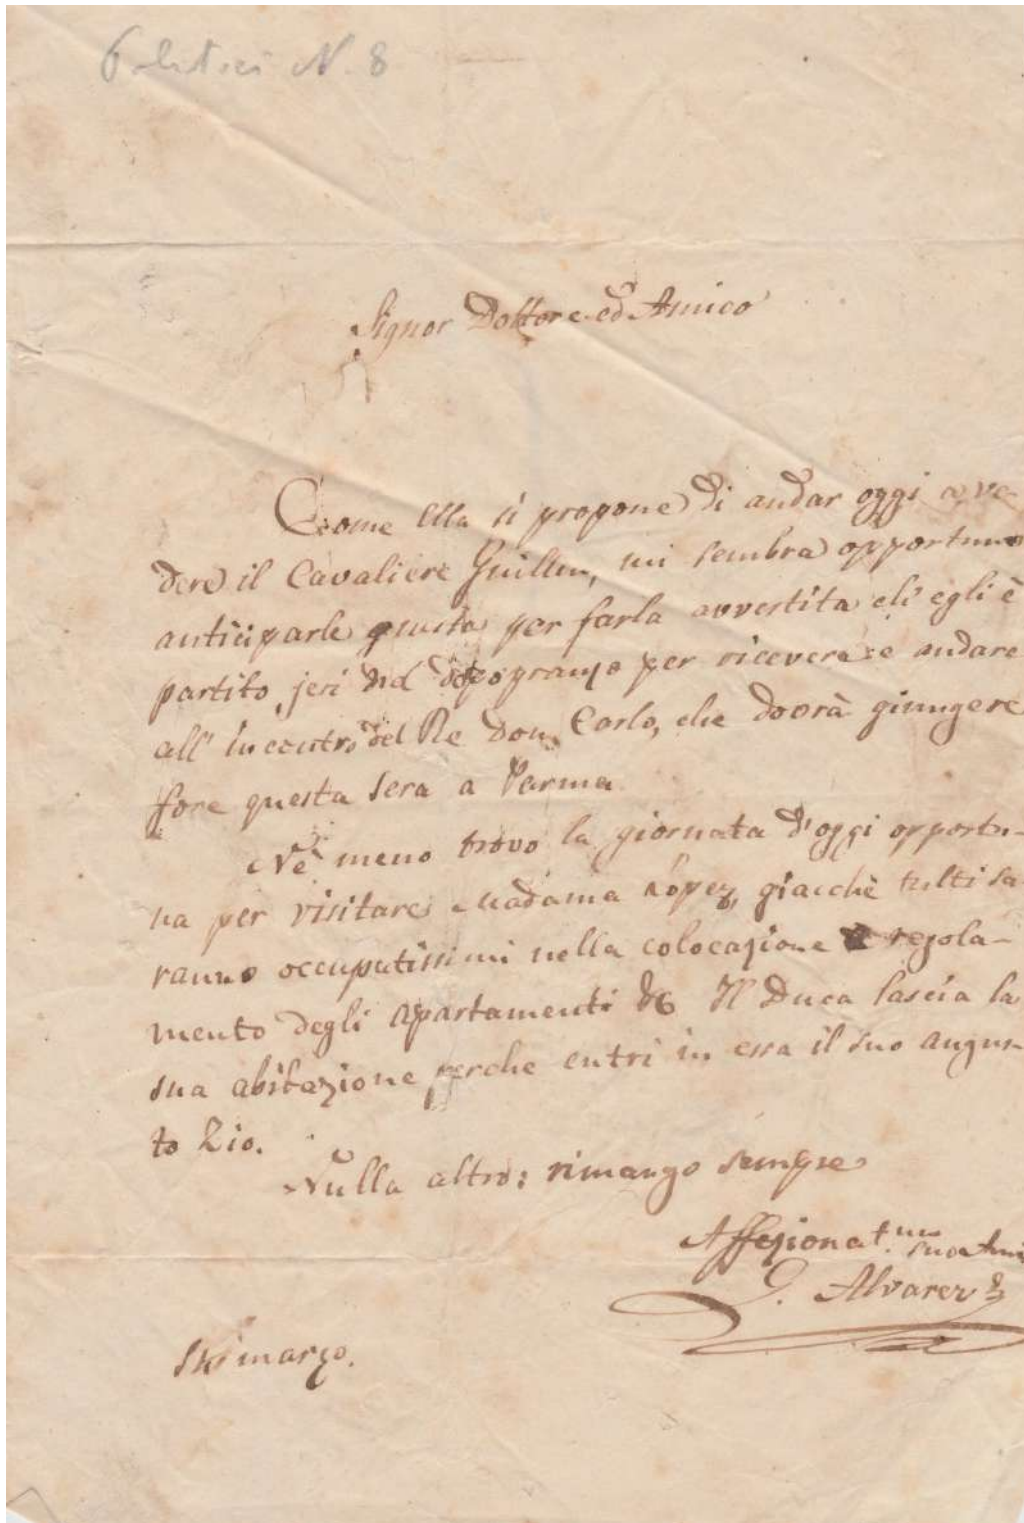 Politici N. 8
Signor Dottore ed Amico
Come Ella si propone di andar oggi a ve-
dere il Cavaliere Guillen, mi sembra opportuno
anticiparle questa per farla avvertita ch' egli è
partito jeri nel dopo pranzo per ricevere e andare
all' incontro del Re Don Carlo, che dovrà giungere
fore questa sera a Parma.
Nè meno trovo la giornata d'oggi opportu-
na per visitare Madama López, giacchè tutti sa
ranno occupatissimi nella colocazione e regola-
mento degli apartamenti &c Il Duca lascia la
sua abitazione perche entri in essa il suo augus-
to Zio.
Nulla altro: rimango sempre
Affezionat.mo suo Ami
G. Alvarez
marzo.